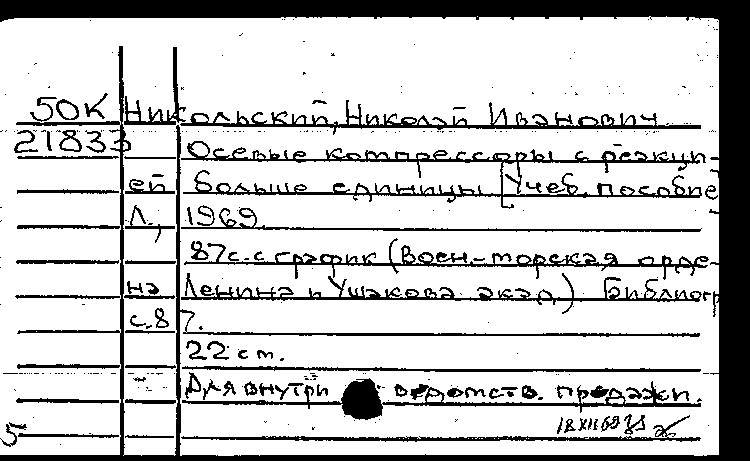 50К Никольский, Николай Иванович
21833
Осевые компрессоры с реакци-
ей больше единицы [Учеб. пособие]
Л., 1969.
87 с. с график (Воен.-морская орде-
на Ленина и Ушакова акад.) Библиогр
с. 87.
22 см.
Для внутриведомств. продажи.
18 XII 69
5